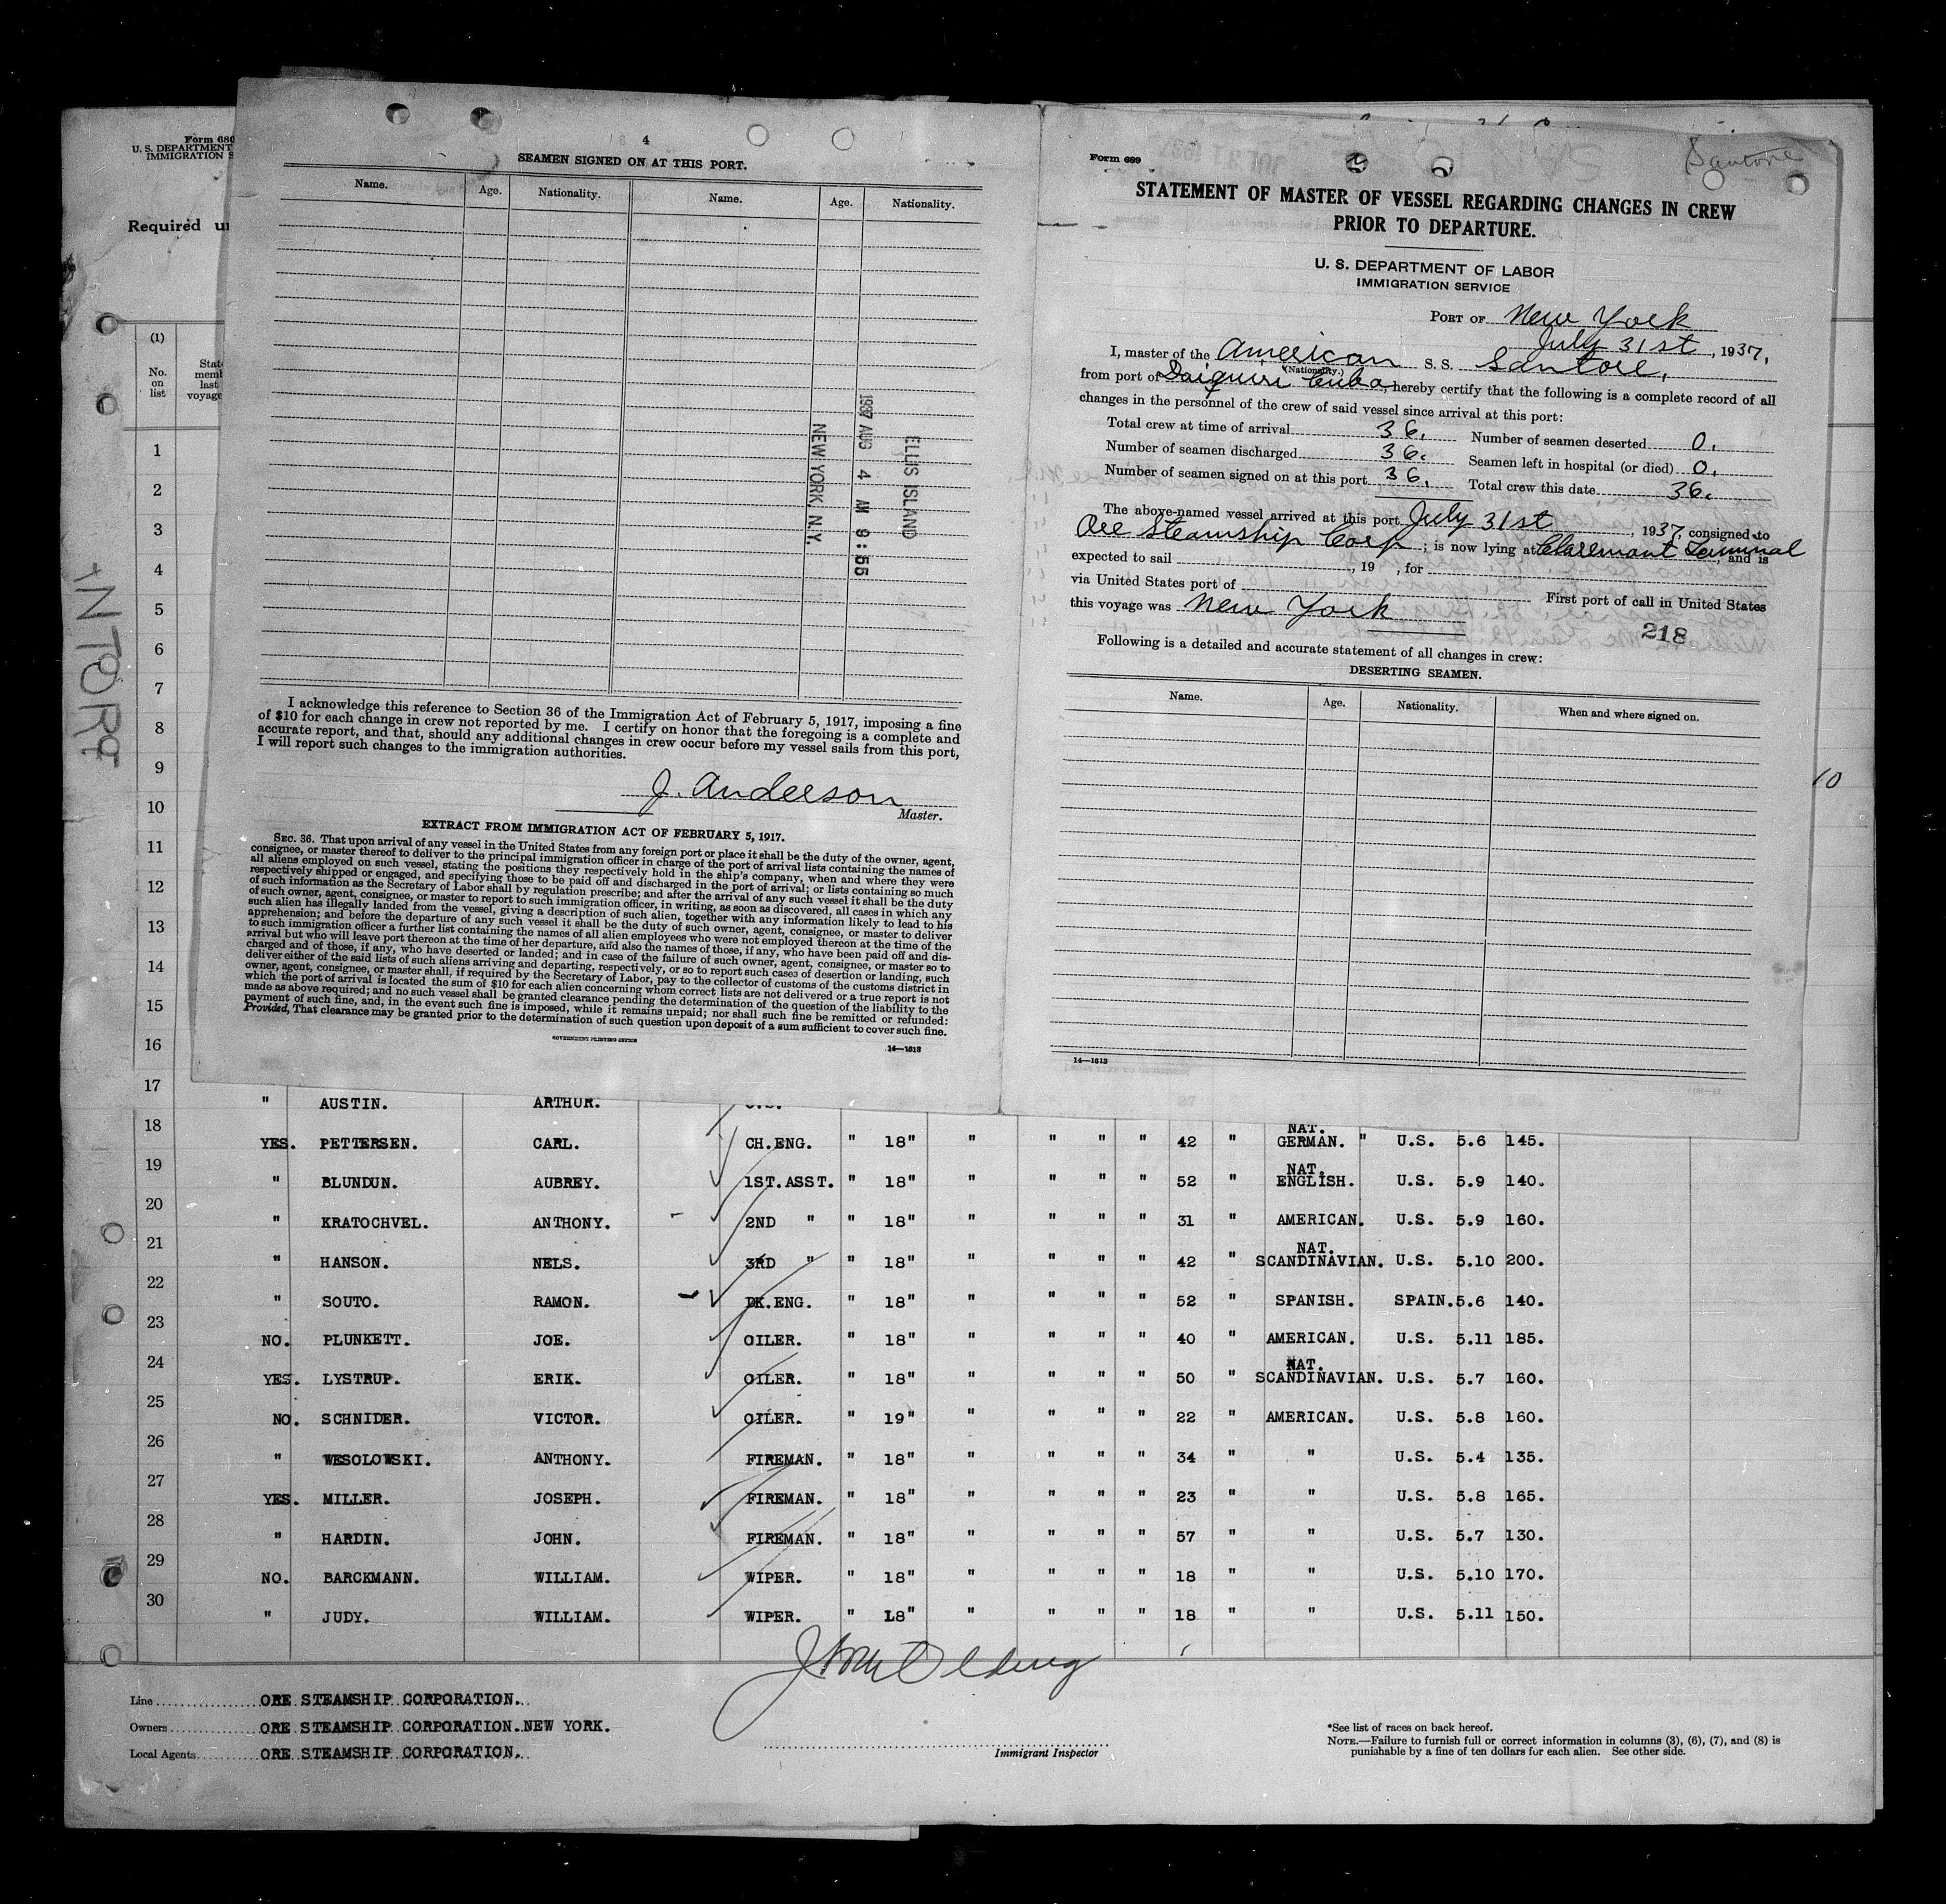 Form 680
U. S. DEPARTMENT
IMMIGRATION S
Required un
(1)
No.
on
list
State
memb
last
voyage
1
2
3
4
5
6
7
8
9
10
11
12
13
14
15
16
17
4
SEAMEN SIGNED ON AT THIS PORT.
Name. Age. Nationality. Name. Age. Nationality.
ELLIS ISLAND
1937 AUG 4 AM 9:55
NEW YORK, N.Y.
I acknowledge this reference to Section 36 of the Immigration Act of February 5, 1917, imposing a fine
of $10 for each change in crew not reported by me. I certify on honor that the foregoing is a complete and
accurate report, and that, should any additional changes in crew occur before my vessel sails from this port,
I will report such changes to the immigration authorities.
J. Anderson
Master.
EXTRACT FROM IMMIGRATION ACT OF FEBRUARY 5, 1917.
SEC. 36. That upon arrival of any vessel in the United States from any foreign port or place it shall be the duty of the owner, agent,
consignee, or master thereof to deliver to the principal immigration officer in charge of the port of arrival lists containing the names of
all aliens employed on such vessel, stating the positions they respectively hold in the ship's company, when and where they were
respectively shipped or engaged, and specifying those to be paid off and discharged in the port of arrival; or lists containing so much
of such information as the Secretary of Labor shall by regulation prescribe; and after the arrival of any such vessel it shall be the duty
of such owner, agent, consignee, or master to report to such immigration officer, in writing, as soon as discovered, all cases in which any
such alien has illegally landed from the vessel, giving a description of such alien, together with any information likely to lead to his
apprehension; and before the departure of any such vessel it shall be the duty of such owner, agent, consignee, or master to deliver
to such immigration officer a further list containing the names of all alien employees who were not employed thereon at the time of the
arrival but who will leave port thereon at the time of her departure, and also the names of those, if any, who have been paid off and dis-
charged and of those, if any, who have deserted or landed; and in case of the failure of such owner, agent, consignee, or master so to
deliver either of the said lists of such aliens arriving and departing, respectively, or so to report such cases of desertion or landing, such
owner, agent, consignee, or master shall, if required by the Secretary of Labor, pay to the collector of customs of the customs district in
which the port of arrival is located the sum of $10 for each alien concerning whom correct lists are not delivered or a true report is not
made as above required; and no such vessel shall be granted clearance pending the determination of the question of the liability to the
payment of such fine, and, in the event such fine is imposed, while it remains unpaid; nor shall such fine be remitted or refunded:
Provided, That clearance may be granted prior to the determination of such question upon deposit of a sum sufficient to cover such fine.
GOVERNMENT PRINTING OFFICE 14—1613
Santore
Form 689
STATEMENT OF MASTER OF VESSEL REGARDING CHANGES IN CREW
PRIOR TO DEPARTURE.
U. S. DEPARTMENT OF LABOR
IMMIGRATION SERVICE
PORT OF New York
July 31st, 1937,
I, master of the American S. S. Santore,
(Nationality.)
from port of Daiquiri Cuba, hereby certify that the following is a complete record of all
changes in the personnel of the crew of said vessel since arrival at this port:
Total crew at time of arrival 36. Number of seamen deserted 0.
Number of seamen discharged 36. Seamen left in hospital (or died) 0.
Number of seamen signed on at this port 36. Total crew this date 36.
The above-named vessel arrived at this port July 31st, 1937, consigned to
Ore Steamship Corp; is now lying at Claremont Terminal, and is
expected to sail , 19 , for
via United States port of First port of call in United States
this voyage was New York
218
Following is a detailed and accurate statement of all changes in crew:
DESERTING SEAMEN.
Name. Age. Nationality. When and where signed on.
14—1613
10
" AUSTIN. ARTHUR.
18 YES. PETTERSEN. CARL. CH.ENG. " 18" " " " " 42 " NAT. GERMAN. " U.S. 5.6 145.
19 " BLUNDUN. AUBREY. 1ST.ASST. " 18" " " " " 52 " NAT. ENGLISH. U.S. 5.9 140.
20 " KRATOCHVEL. ANTHONY. 2ND " " 18" " " " " 31 " AMERICAN. U.S. 5.9 160.
21 " HANSON. NELS. 3RD " " 18" " " " " 42 " NAT. SCANDINAVIAN. U.S. 5.10 200.
22 " SOUTO. RAMON. DK.ENG. " 18" " " " " 52 " SPANISH. SPAIN. 5.6 140.
23 NO. PLUNKETT. JOE. OILER. " 18" " " " " 40 " AMERICAN. U.S. 5.11 185.
24 YES. LYSTRUP. ERIK. OILER. " 18" " " " " 50 " NAT. SCANDINAVIAN. U.S. 5.7 160.
25 NO. SCHNIDER. VICTOR. OILER. " 19" " " " " 22 " AMERICAN. U.S. 5.8 160.
26 " WESOLOWSKI. ANTHONY. FIREMAN. " 18" " " " " 34 " " U.S. 5.4 135.
27 YES. MILLER. JOSEPH. FIREMAN. " 18" " " " " 23 " " U.S. 5.8 165.
28 " HARDIN. JOHN. FIREMAN. " 18" " " " " 57 " " U.S. 5.7 130.
29 NO. BARCKMANN. WILLIAM. WIPER. " 18" " " " " 18 " " U.S. 5.10 170.
30 " JUDY. WILLIAM. WIPER. " 18" " " " " 18 " " U.S. 5.11 150.
Line ORE STEAMSHIP CORPORATION.
Owners ORE STEAMSHIP CORPORATION. NEW YORK.
Local Agents ORE STEAMSHIP CORPORATION.
Immigrant Inspector
*See list of races on back hereof.
NOTE.—Failure to furnish full or correct information in columns (3), (6), (7), and (8) is
punishable by a fine of ten dollars for each alien. See other side.